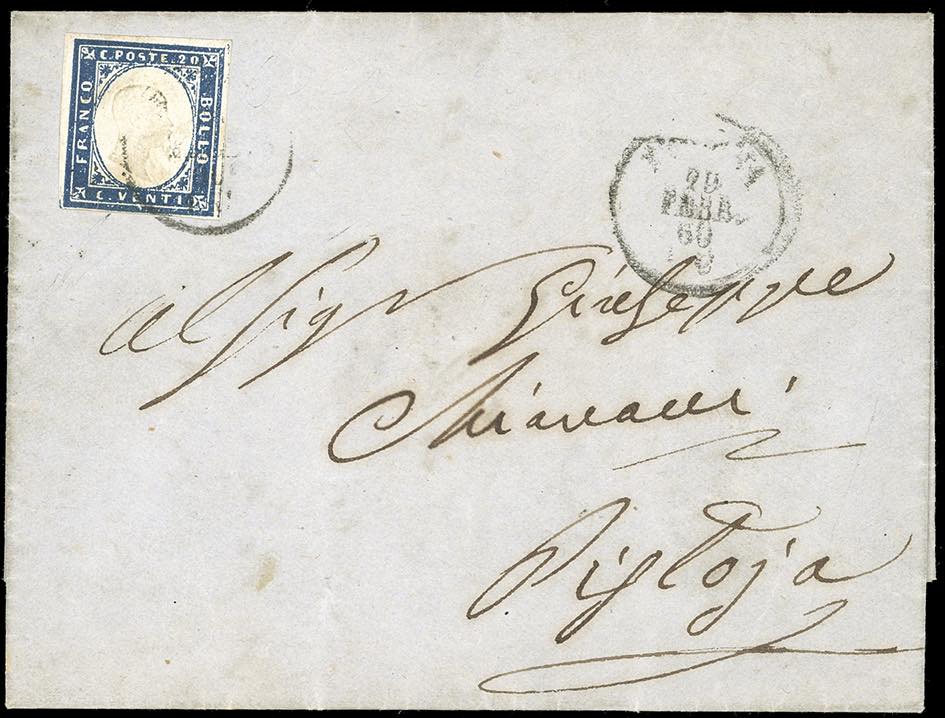 C. POSTE. 20
FRANCO
BOLLO
C. VENTI
29
FEBB.
60
Al Sigr Giuseppe
Pistoja